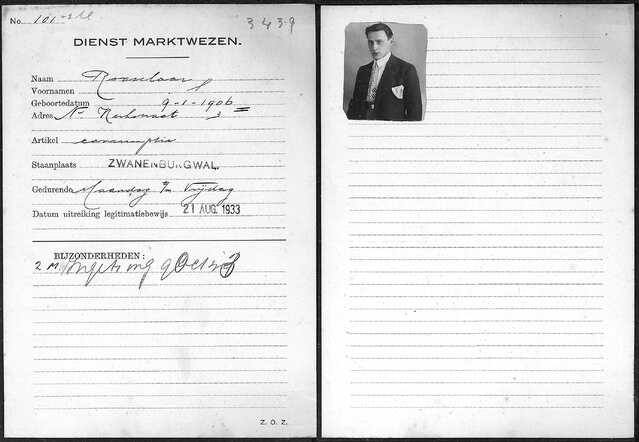 No. 101
3439
DIENST MARKTWEZEN.
Naam Roeselaar
Voornamen
Geboortedatum 9-1-1906
Adres N. 3
Artikel
Staanplaats ZWANENBURGWAL.
Gedurende Maandag t/m Vrijdag
Datum uitreiking legitimatiebewijs 21 AUG. 1933
BIJZONDERHEDEN:
2 M
Z. O. Z.